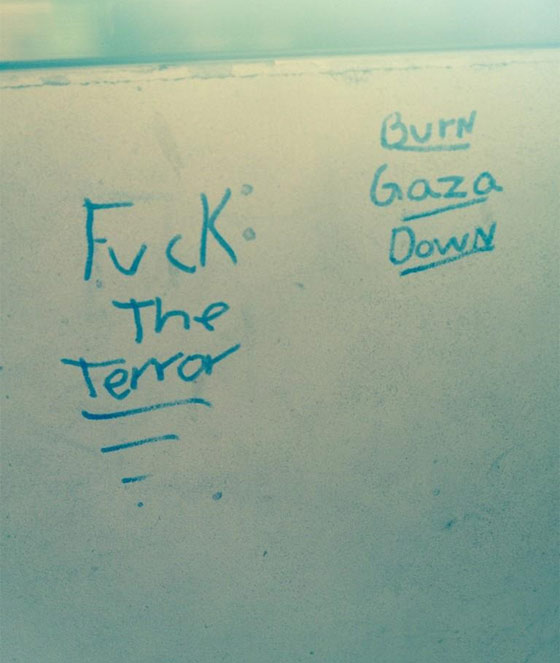 Fuck:
The
Terror
Burn
Gaza
Down